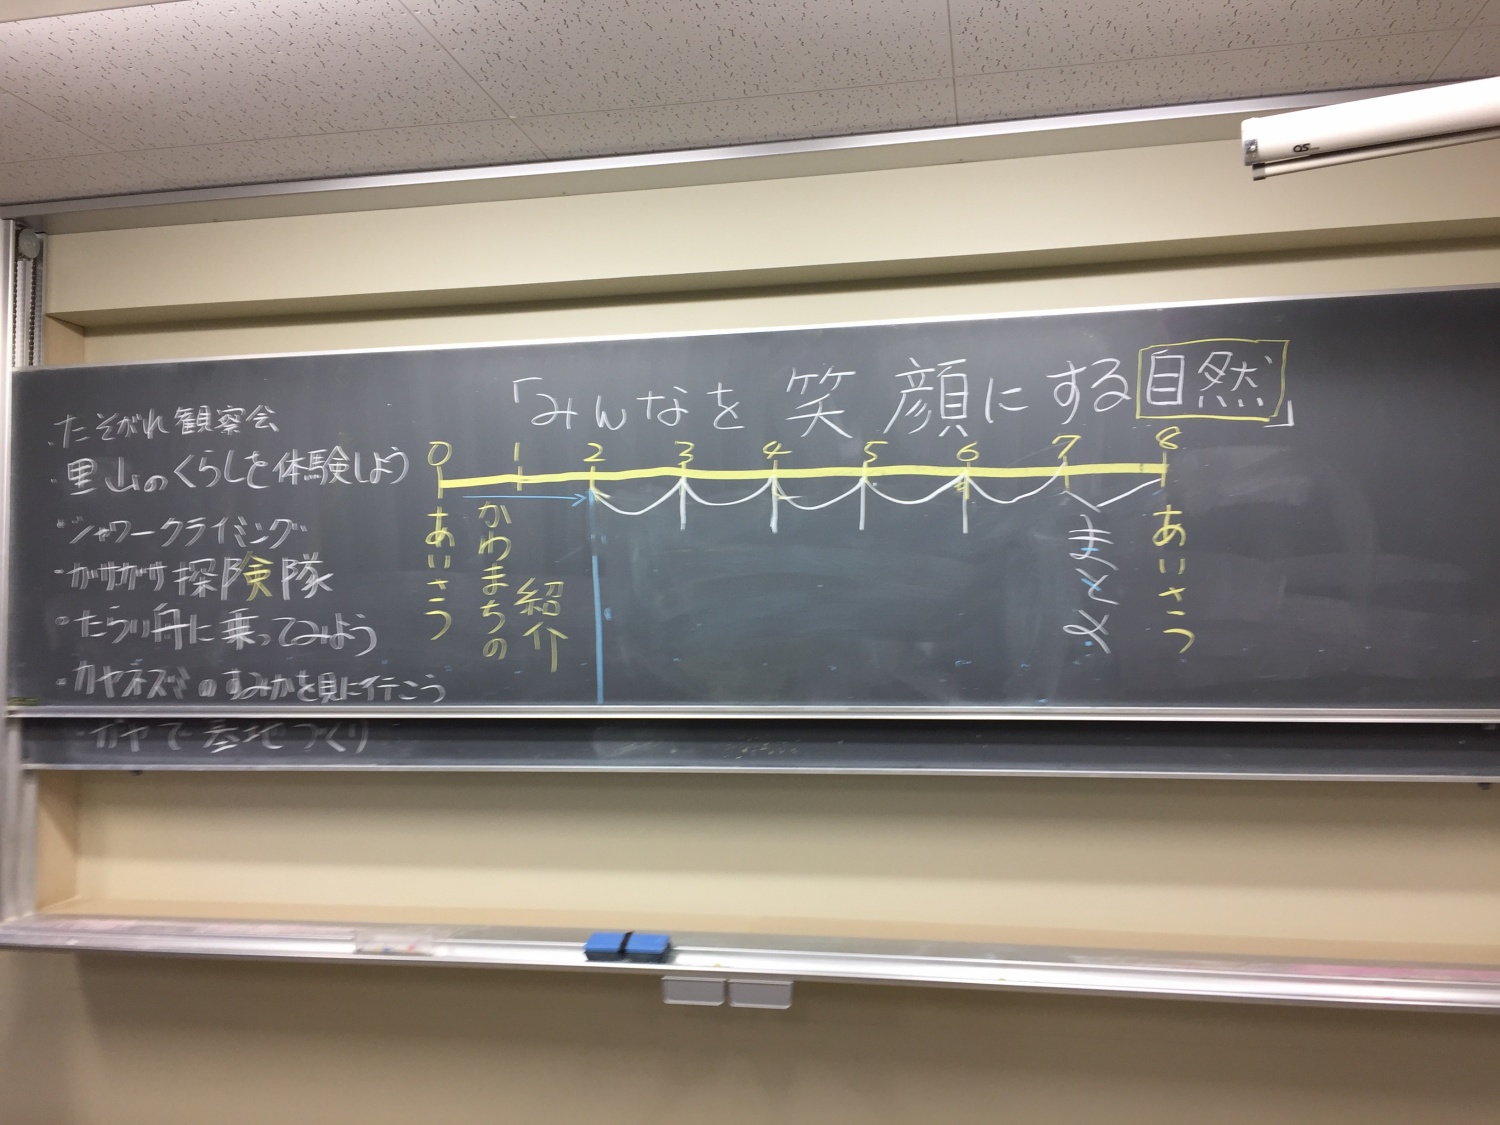 「みんなを笑顔にする自然」
・たそがれ観察会
・里山のくらしを体験しよう
・シャワークライミング
・ガサガサ探険隊
・たらい舟に乗ってみよう
・カヤネズミのすみかを見に行こう
・カヤで基地づくり
0 1 2 3 4 5 6 7 8
あいさつ
かわまちの
紹介
まとめ
あいさつ
OS